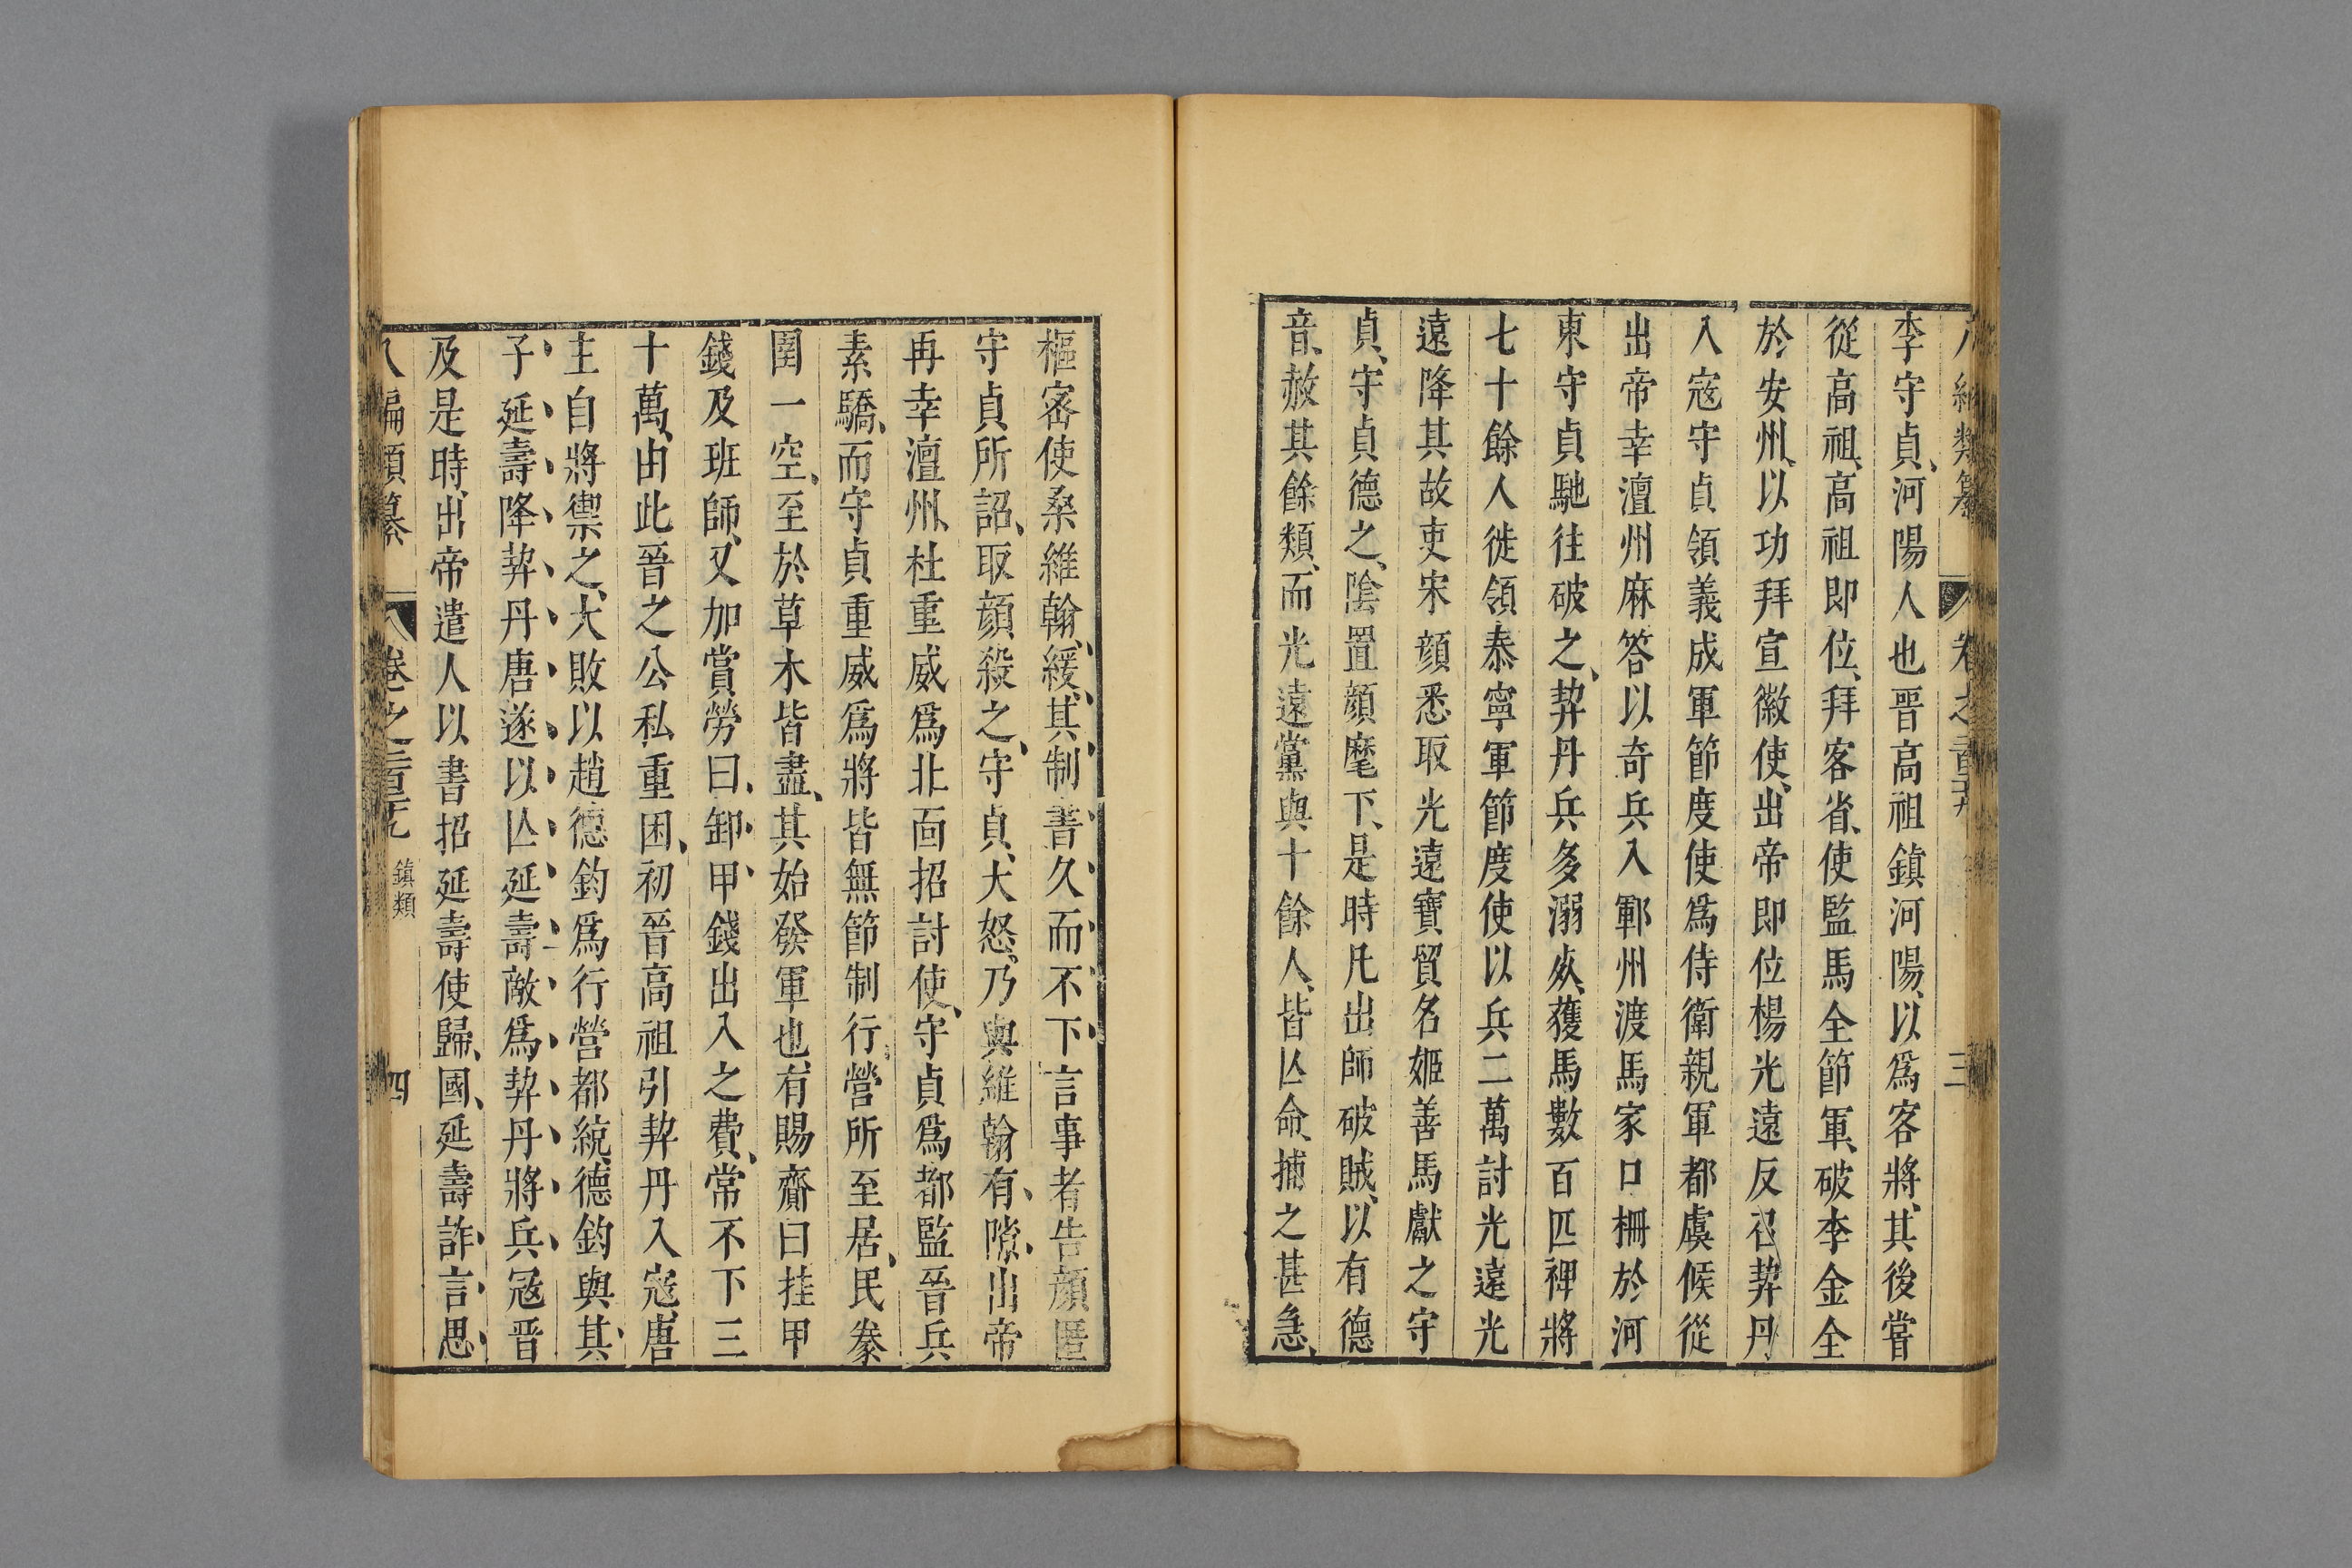 李守貞、河陽人也晋高祖鎮河陽、以爲客將、其後嘗
從高祖、高祖即位、拜客省、使監馬全節軍、破李金全
於安州、以功拜宣徽使、出帝即位楊光遠反召契丹
入寇守貞領義成軍節度使爲侍衛親軍都虞候從
出帝幸澶州麻答以奇兵入鄆州渡馬家口柵於河
東守貞馳往破之、契丹兵多溺死、獲馬數百匹裨將
七十餘人徙領泰寧軍節度使以兵二萬討光遠光
遠降其故吏宋顔悉取光遠寶貨名姬善馬獻之守
貞、守貞德之、陰置顔麾下、是時凡出師破賊、以有德
音、赦其餘類、而光遠黨與十餘人、皆亾命、捕之甚急、
樞密使桑維翰、緩、其、制、書、久、而、不、下、言事者告顔匿
守貞所、詔、取顔殺之、守貞、大怒、乃與維翰有、隙、出帝
再幸澶州、杜重威爲北面招討使、守貞爲都監晉兵
素驕、而守貞重威爲將皆無節制行、營所至居、民豢
圉一空、至於草木皆盡、其始發軍也、有賜齎曰挂甲
錢及班師、又加賞勞曰、卸、甲、錢出入之費、常不下三
十萬、由此晉之公私重困、初晉高祖引契丹入寇、唐
主自將禦之、大敗以趙德鈞爲行營都統、德鈞與其、
子、延、壽、降、契、丹、唐、遂、以、亾、延、壽、敵、爲、契、丹、將、兵、寇晋
及是時、出帝遣人以書招延壽使歸、國、延壽詐、言、思、
八編類纂 卷之二百三十九 鎮類 四